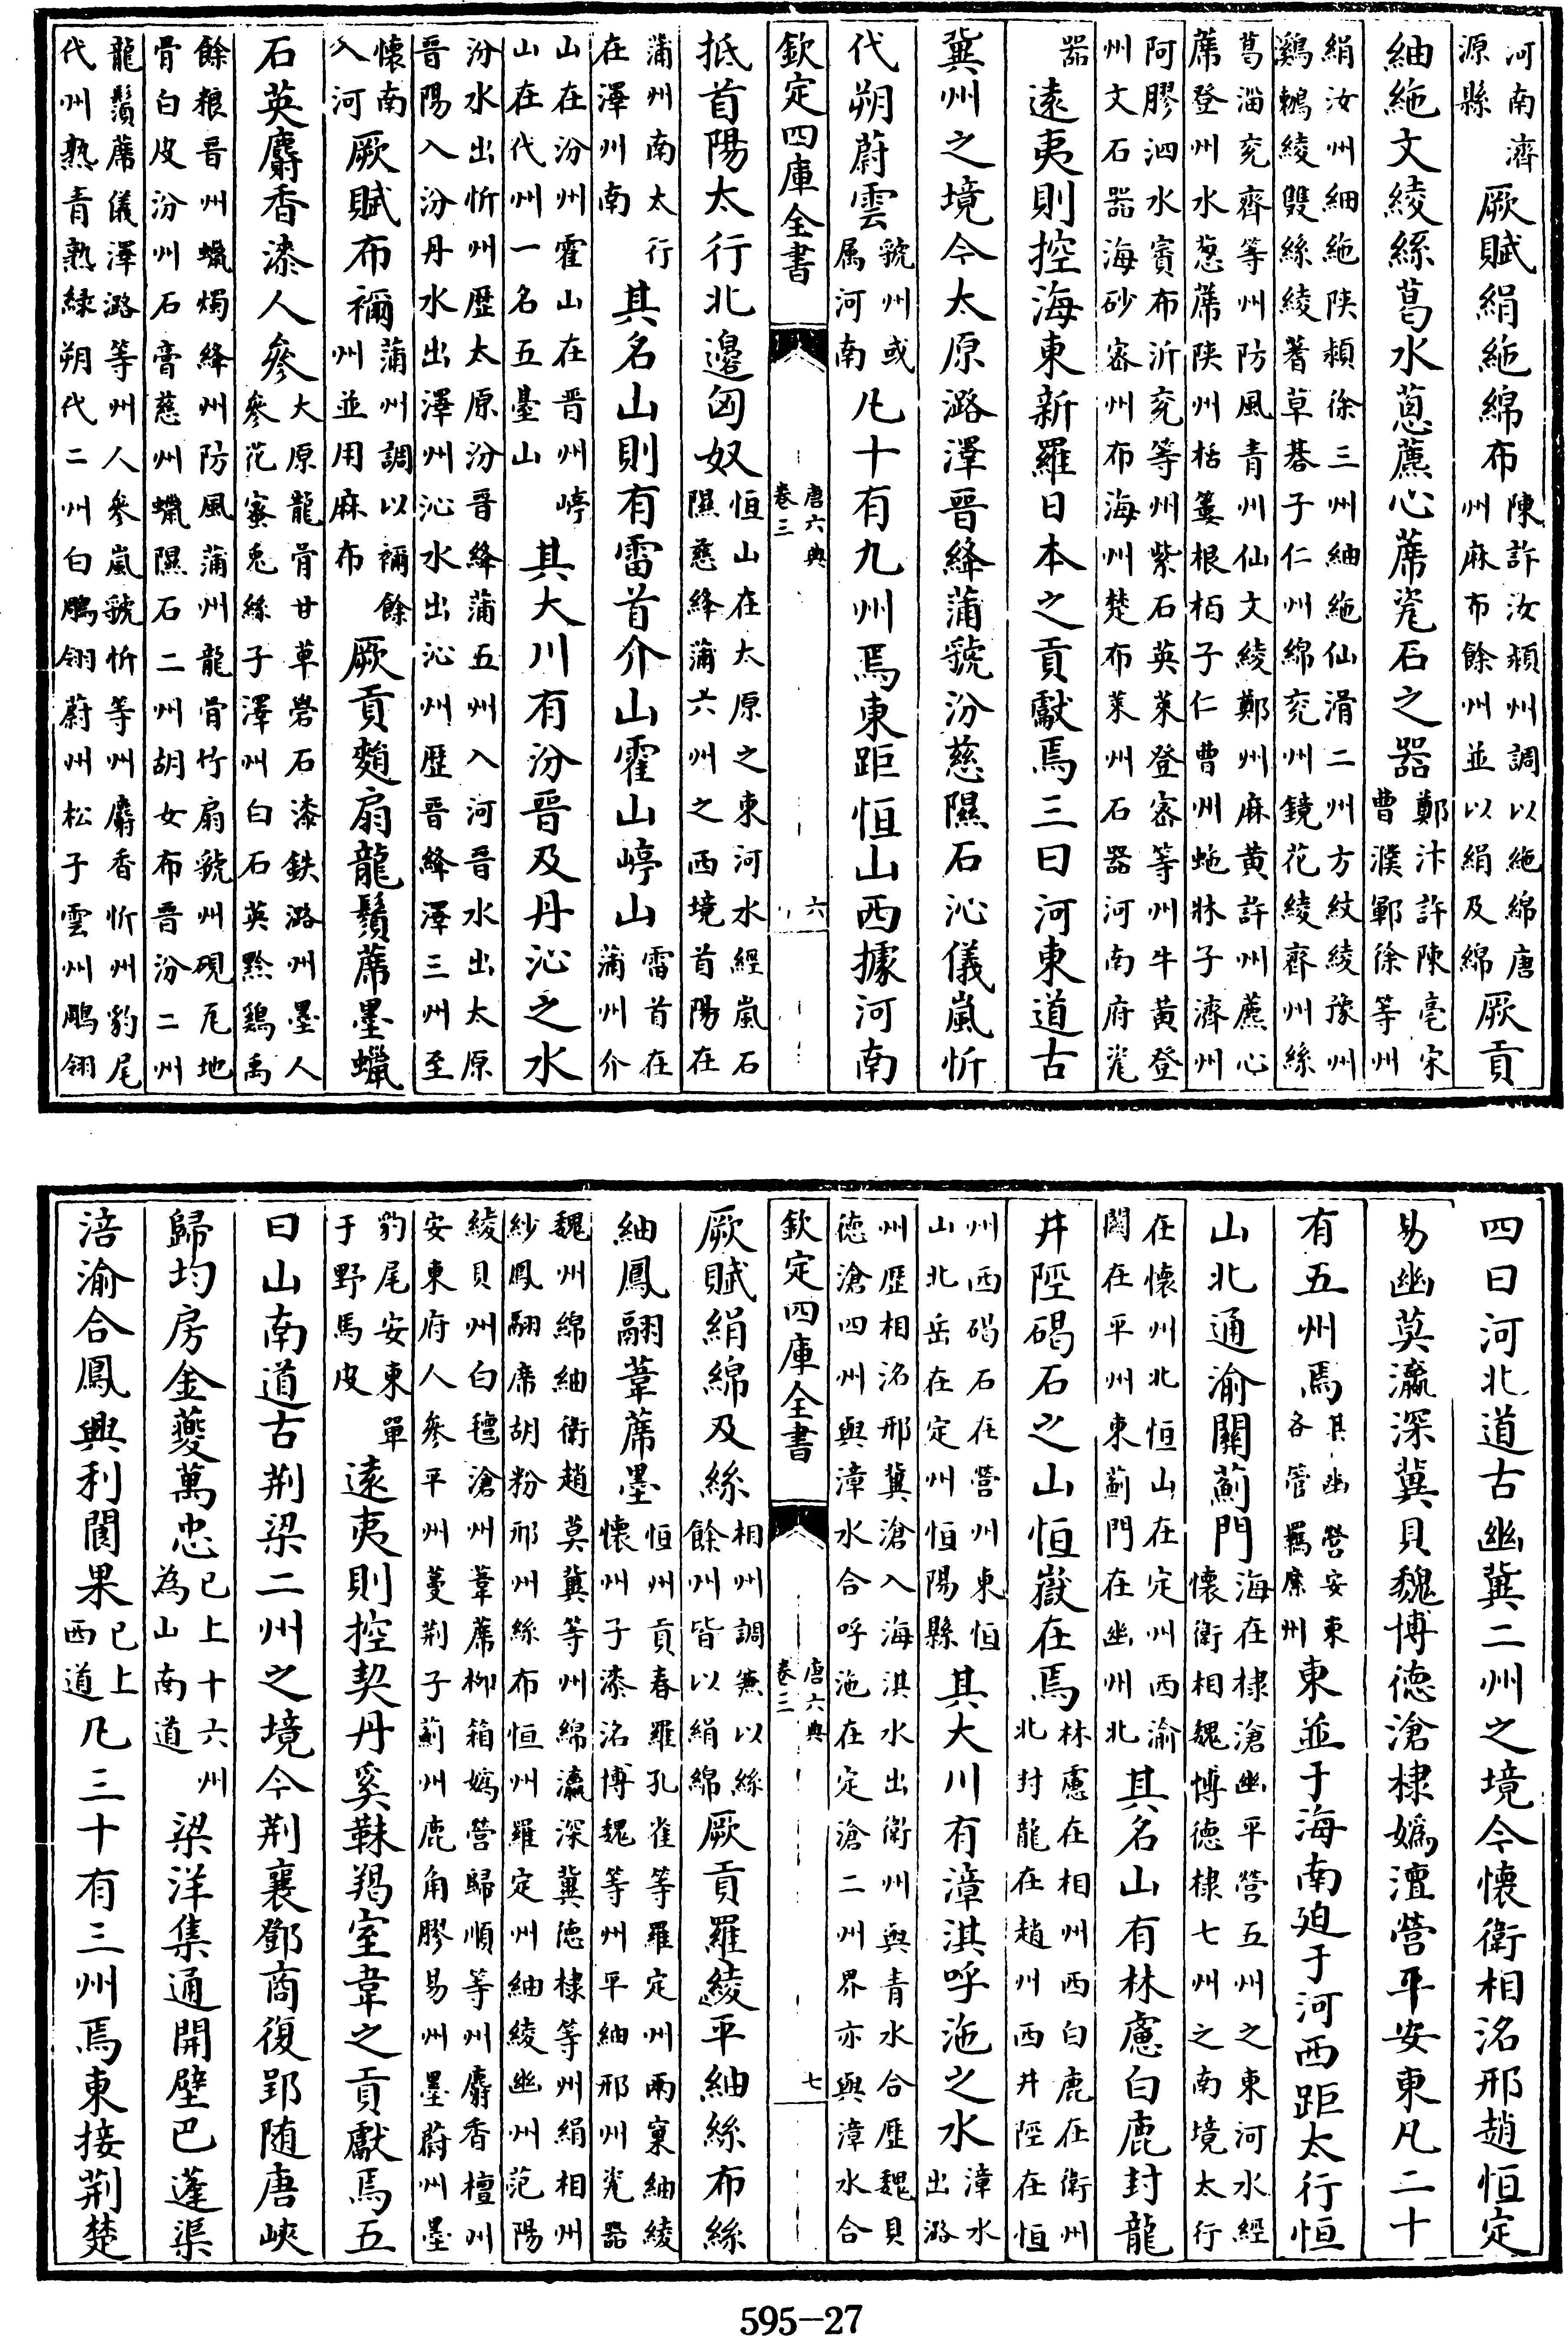 河南濟源縣厥賦絹絁綿布陳許汝潁州調以絁綿唐州麻布餘州並以絹及綿厥貢
紬絁文綾絲葛水葱藨心蓆瓷石之器鄭汴許陳亳宋曹濮鄆徐等州
絹汝州細絁陝潁徐三州紬絁仙滑二州方紋綾豫州鸂鶒綾雙絲綾蓍草碁子仁州綿兖州鏡花綾齊州絲
葛淄兖齊等州防風青州仙文綾鄭州麻黄許州藨心蓆登州水葱蓆陝州栝蔞根柏子仁曹州虵牀子濟州
阿膠泗水賓布沂兖等州紫石英萊登密等州牛黄登州文石器海砂密州布海州楚布萊州石器河南府瓷
器遠夷則控海東新羅日本之貢獻焉三曰河東道古
冀州之境今太原潞澤晉絳蒲虢汾慈隰石沁儀嵐忻
代朔蔚雲虢州或属河南凡十有九州焉東距恒山西據河南
欽定四庫全書 唐六典卷三 六
抵首陽太行北邊匈奴恒山在太原之東河水經嵐石隰慈絳蒲六州之西境首陽在
蒲州南太行在澤州南其名山則有雷首介山霍山崞山雷首在蒲州介
山在汾州霍山在晉州崞山在代州一名五臺山其大川有汾晉及丹沁之水
汾水出忻州歷太原汾晉絳蒲五州入河晉水出太原晉陽入汾丹水出澤州沁水出沁州歷晉絳澤三州至
懷南入河厥賦布襧蒲州調以襧餘州並用麻布厥貢麫扇龍鬚蓆墨蠟
石英麝香漆人參大原龍骨甘草礜石漆鉄潞州墨人參花蜜兎絲子澤州白石英黔鷄禹
餘粮晉州蠟燭絳州防風蒲州龍骨竹扇虢州硯瓦地骨白皮汾州石膏慈州蠟隰石二州胡女布晉汾二州
龍鬚蓆儀澤潞等州人參嵐虢忻等州麝香忻州豹尾代州熟青熟緑朔代二州白鵰翎蔚州松子雲州鵰翎
四曰河北道古幽冀二州之境今懷衛相洺邢趙恒定
易幽莫瀛深冀貝魏博德滄棣嬀澶營平安東凡二十
有五州焉其幽營安東各管羈縻州東並于海南廹于河西距太行恒
山北通渝關薊門海在棣滄幽平營五州之東河水經懷衛相魏博德棣七州之南境太行
在懷州北恒山在定州西渝関在平州東薊門在幽州北其名山有林慮白鹿封龍
井陘碣石之山恒嶽在焉林慮在相州西白鹿在衛州北封龍在趙州西井陘在恒
州西碣石在營州東恒山北岳在定州恒陽縣其大川有漳淇呼沲之水漳水出潞
州歷相洺邢冀滄入海淇水出衛州與青水合歷魏貝德滄四州與漳水合呼沲在定滄二州界亦與漳水合
欽定四庫全書 唐六典卷三 七
厥賦絹綿及絲相州調兼以絲餘州皆以絹綿厥貢羅綾平紬絲布絲
紬鳳翮葦蓆墨恒州貢春羅孔雀等羅定州兩窠紬綾懷州子漆洺博魏等州平紬邢州瓷器
魏州綿紬衛趙莫冀等州綿瀛深冀德棣等州絹相州紗鳳翮席胡粉邢州絲布恒州羅定州紬綾幽州范陽
綾貝州白氊滄州葦蓆柳箱嬀營歸順等州麝香檀州安東府人參平州蔓荆子薊州鹿角膠易州墨蔚州墨
豹尾安東單于野馬皮遠夷則控契丹奚靺羯室韋之貢獻焉五
曰山南道古荆梁二州之境今荆襄鄧商復郢随唐峽
歸均房金夔萬忠已上十六州為山南道梁洋集通開壁巴蓬渠
涪渝合鳳興利閬果已上西道凡三十有三州焉東接荆楚
595-27